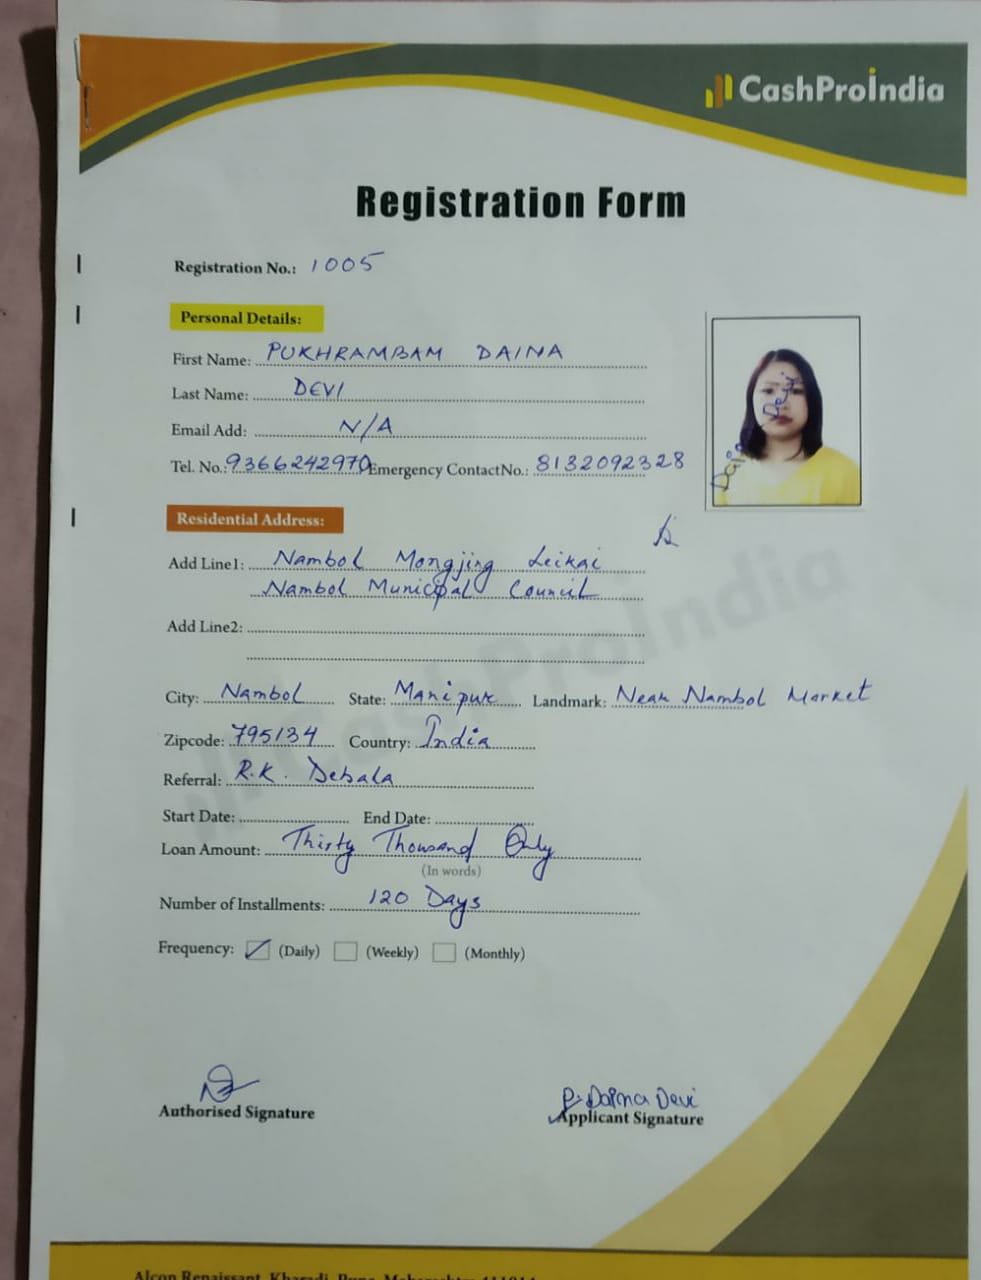 CashProIndia
Registration Form
Registration No.: 1005
Personal Details:
First Name: PUKHRAMBAM DAINA
Last Name: DEVI
Email Add: N/A
Tel. No.: 9366242970 Emergency ContactNo.: 8132092328
Daina Devi
Residential Address:
Add Line1: Nambol Mongjing Leikai
Nambol Municipal Council
Add Line2:
City: Nambol State: Manipur Landmark: Near Nambol Market
Zipcode: 795134 Country: India
Referral: R.K. Debala
Start Date: End Date:
Loan Amount: Thirty Thousand Only
(In words)
Number of Installments: 120 Days
Frequency: (Daily) (Weekly) (Monthly)
CashProIndia
P. Daina Devi
Authorised Signature Applicant Signature
Alcon Renaissant, Kharadi, Pune, Maharashtra 411014